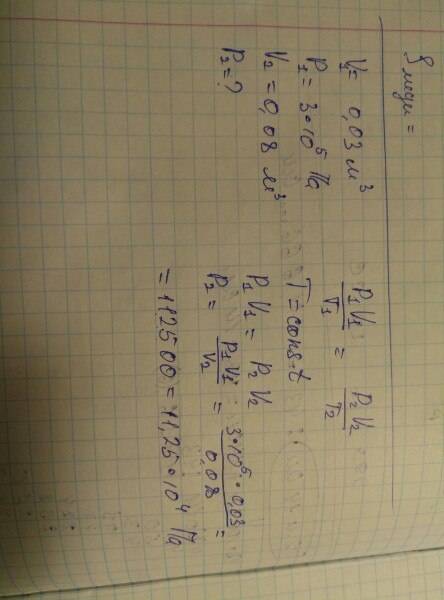 ρ меди =
V₁ = 0,03 м³
P₁ = 3·10⁵ Па
V₂ = 0,08 м³
P₂ = ?
P₁V₁/T₁ = P₂V₂/T₂
T = const
P₁V₁ = P₂V₂
P₂ = P₁V₁/V₂ = 3·10⁵·0,03/0,08 =
= 112500 = 11,25·10⁴ Па